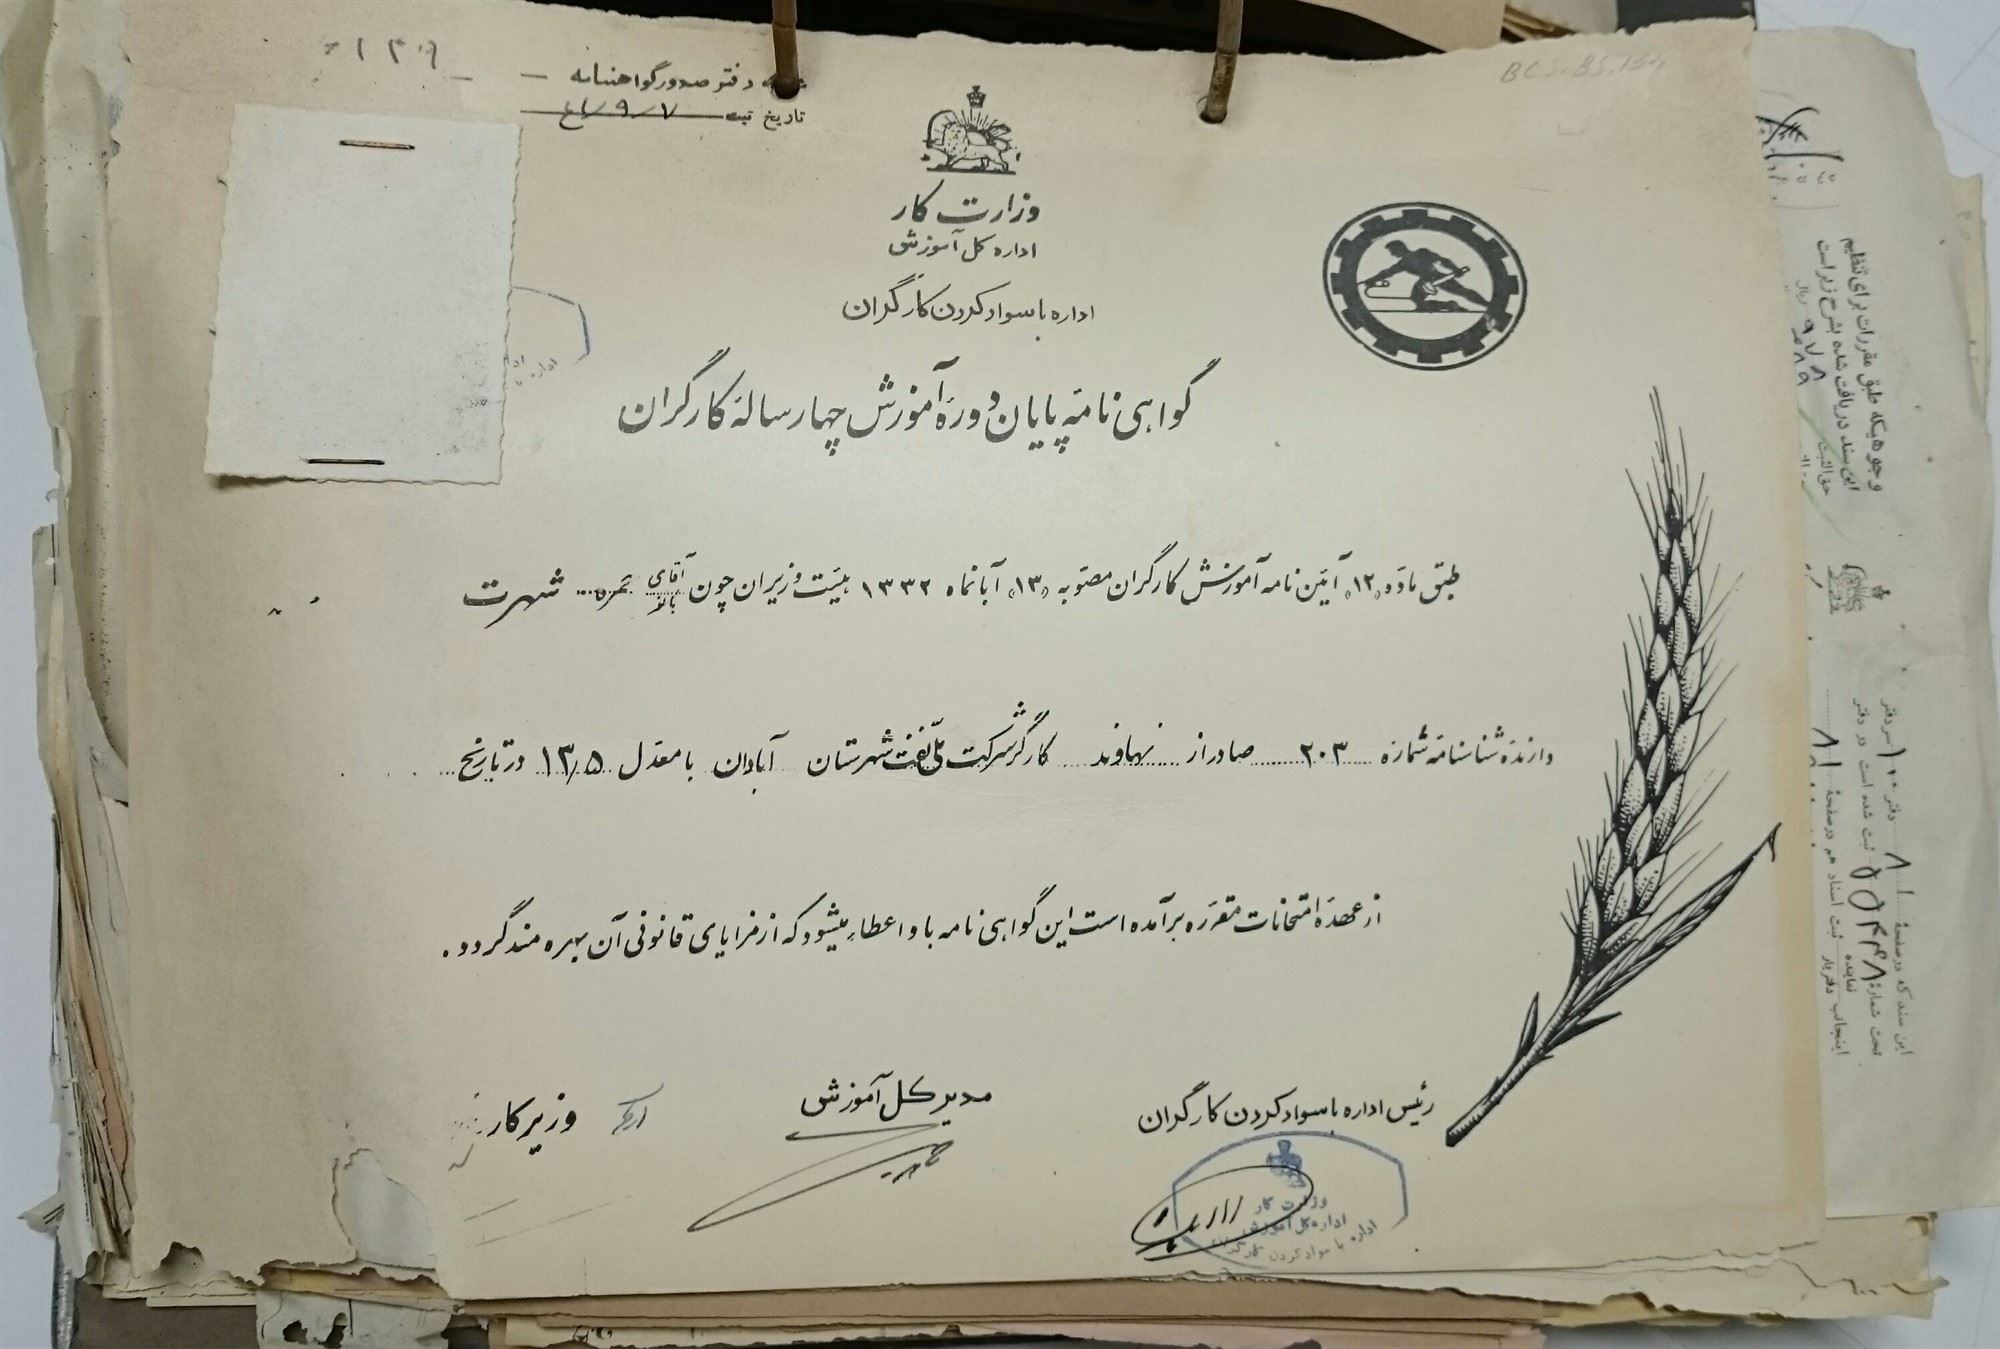 دفتر صدور گواهینامه
تاریخ ثبت
وزارت کار
اداره کل آموزش
اداره باسواد کردن کارگران
گواهی نامه پایان دوره آموزش چهار ساله کارگران
طبق ماده «۱۲» آئین نامه آموزش کارگران مصوبه «۱۳» آبانماه ۱۳۳۲ هیئت وزیران چون آقای بانو شهرت
دارنده شناسنامه شماره ۲۰۳ صادر از نهاوند کارگر شرکت ملی نفت شهرستان آبادان با معدل ۱۳/۵ در تاریخ
از عهده امتحانات مقرره برآمده است این گواهی نامه باو اعطاء میشود که از مزایای قانونی آن بهره مند گردد.
رئیس اداره باسواد کردن کارگران
مدیر کل آموزش
وزیر کار
وزارت کار
اداره کل آموزش
اداره باسواد کردن کارگران
وجوهیکه طبق مقررات برای تنظیم
این سند دریافت شده بشرح زیر است
حق الثبت ۹۷۸ ریال
این سند که در صفحه ۸۱ دفتر سردفتر
تحت شماره ثبت شده است در دفتر
نماینده
اینجانب دفتریار ثبت اسناد هم در صفحه ۸۱